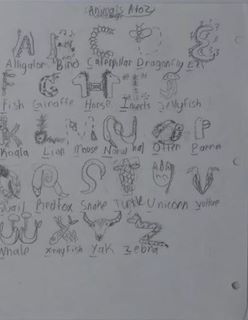 Animals A to Z
Alligator Bird Caterpillar Dragonfly
Fish Giraffe Horse Insects Jellyfish
Koala Lion Mouse Narwhal Otter
Quail Redfox Snake Turtle Unicorn Vulture
Whale xrayfish Yak Zebra